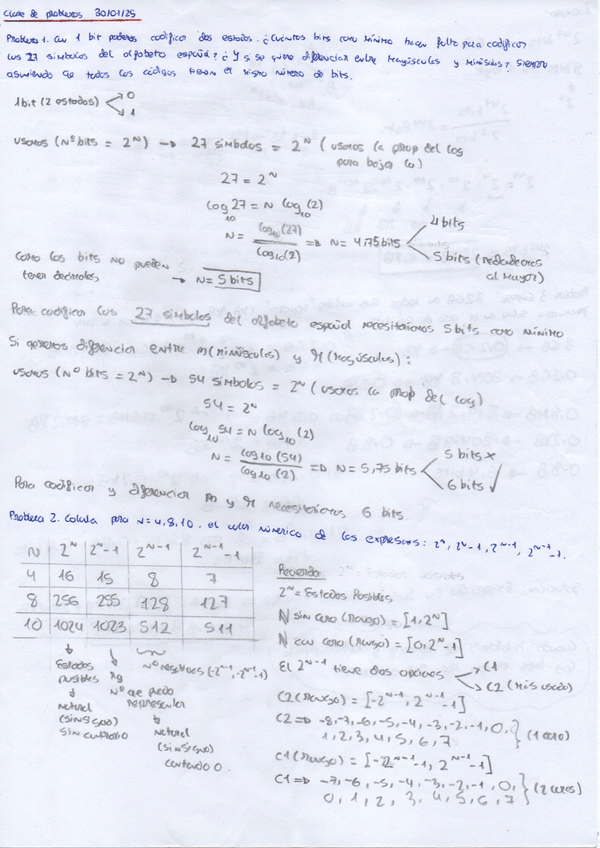 Clase de problemas 30/01/25
Problema 1. Con 1 bit podemos codificar dos estados. ¿Cuántos bits como mínimo hacen falta para codificar
los 27 símbolos del alfabeto español? ¿Y si se quiere diferenciar entre mayúsculas y minúsculas? Siempre
asumiendo que todos los códigos tienen el mismo número de bits.
1 bit (2 estados) 0
1
usamos (Nº bits = 2^N) → 27 símbolos = 2^N (usamos la prop del log
para bajar la)
27 = 2^N
log₁₀ 27 = N log₁₀ (2)
N = log₁₀(27) / log₁₀(2) ⇒ N = 4,75 bits
4 bits
5 bits (redondeamos
al mayor).
como los bits no pueden
tener decimales → N = 5 bits
Para codificar los 27 símbolos del alfabeto español necesitaríamos 5 bits como mínimo
Si queremos diferenciar entre m(minúsculas) y M(mayúsculas):
usamos (Nº bits = 2^N) → 54 símbolos = 2^N (usamos la prop del log)
54 = 2^N
log₁₀ 54 = N log₁₀ (2)
N = log10 (54) / log10 (2) ⇒ N = 5,75 bits
5 bits x
6 bits ✓
Para codificar y diferenciar m y M necesitaríamos 6 bits.
Problema 2. Calcula para N=4,8,10, el valor númerico de las expresiones: 2^N, 2^N-1, 2^(N-1), 2^(N-1)-1.
N 2^N 2^N-1 2^(N-1) 2^(N-1)-1
4 16 15 8 7
8 256 255 128 127
10 1024 1023 512 511
Estados
posibles
natural
(sin signo)
sin contar 0
Nº que puedo
representar
natural
(sin signo)
contando 0.
Nº negativos (-2^(N-1), 2^(N-1)-1)
Recuerdo:
2^N = Estados Posibles
N sin cero (rango) = [1, 2^N]
N con cero (rango) = [0, 2^N-1]
El 2^(N-1) tiene dos opciones C1
C2 (más usado)
C2 (rango) = [-2^(N-1), 2^(N-1)-1]
C2 ⇒ -8, -7, -6, -5, -4, -3, -2, -1, 0,
1, 2, 3, 4, 5, 6, 7 (1 cero)
C1 (rango) = [-2^(N-1)-1, 2^(N-1)-1]
C1 ⇒ -7, -6, -5, -4, -3, -2, -1, 0,
0, 1, 2, 3, 4, 5, 6, 7 (2 ceros)